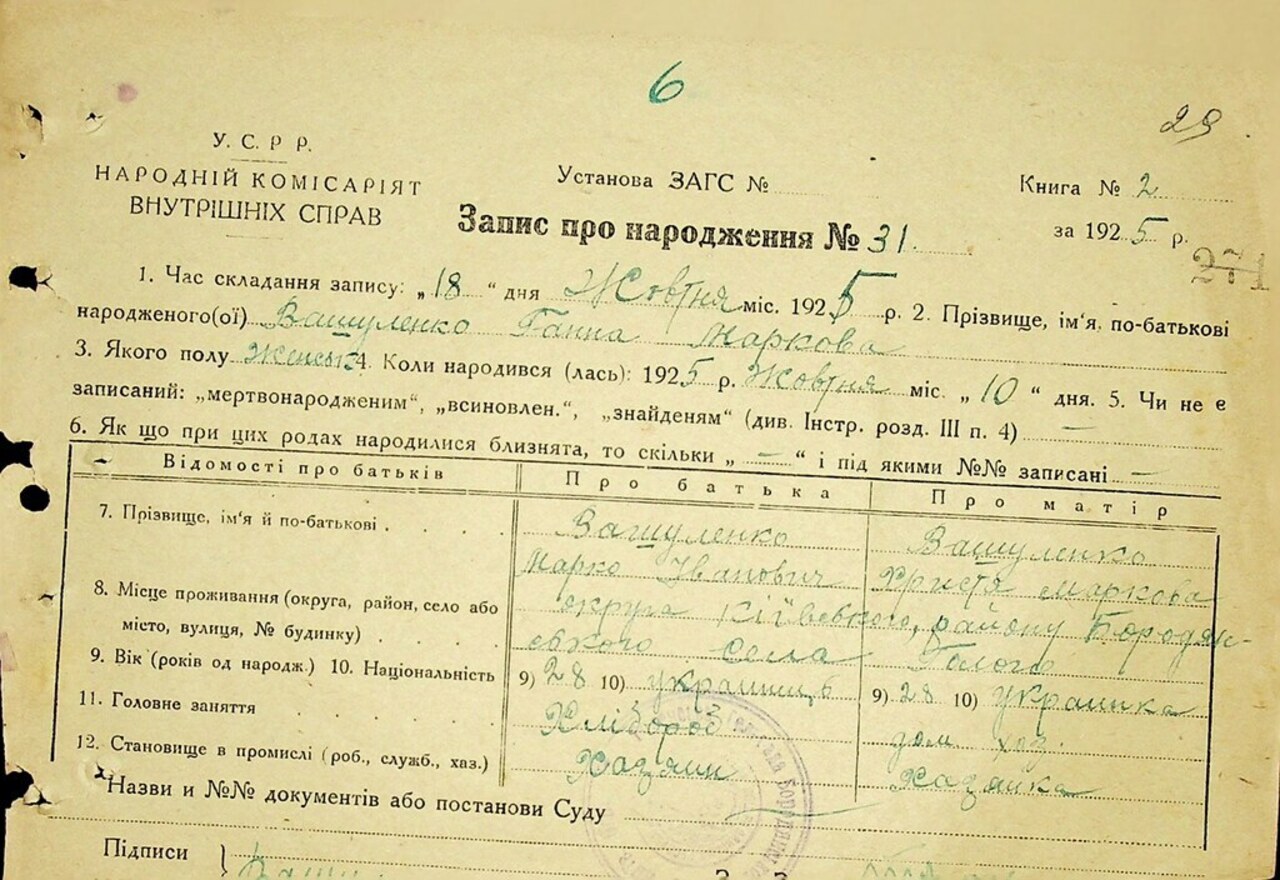 6
29
У. С. Р Р.
НАРОДНІЙ КОМІСАРІЯТ
ВНУТРІШНІХ СПРАВ
Установа ЗАГС №
Книга № 2
Запис про народження № 31.
за 1925 р.
271
1. Час складання запису: „18“ дня Жовтня міс. 1925 р. 2. Прізвище, ім'я, по-батькові
народженого(ої) Вашуленко Ганна Маркова
3. Якого полу Женськ 4. Коли народився (лась): 1925 р. Жовтня міс. „10“ дня. 5. Чи не є
записаний: „мертвонародженим“, „всиновлен.“, „знайденям“ (див. Інстр. розд. III п. 4) —
6. Як що при цих родах народилися близнята, то скільки „—“ і під якими №№ записані —
Відомості про батьків Про батька Про матір
7. Прізвище, ім'я й по-батькові . . . . Вашуленко Марко Іванович Вашуленко Христя Маркова
8. Місце проживання (округа, район, село або округа Київського, району Бородян-
місто, вулиця, № будинку) . . . ського села
9. Вік (років од народж.) 10. Національність 9) 28 10) українець 9) 28 10) украинка
11. Головне заняття . . . . Хлібороб дом. хоз.
12. Становище в промислі (роб., служб., хаз.) Хазяин Хазяика
Назви и №№ документів або постанови Суду —
Підписи